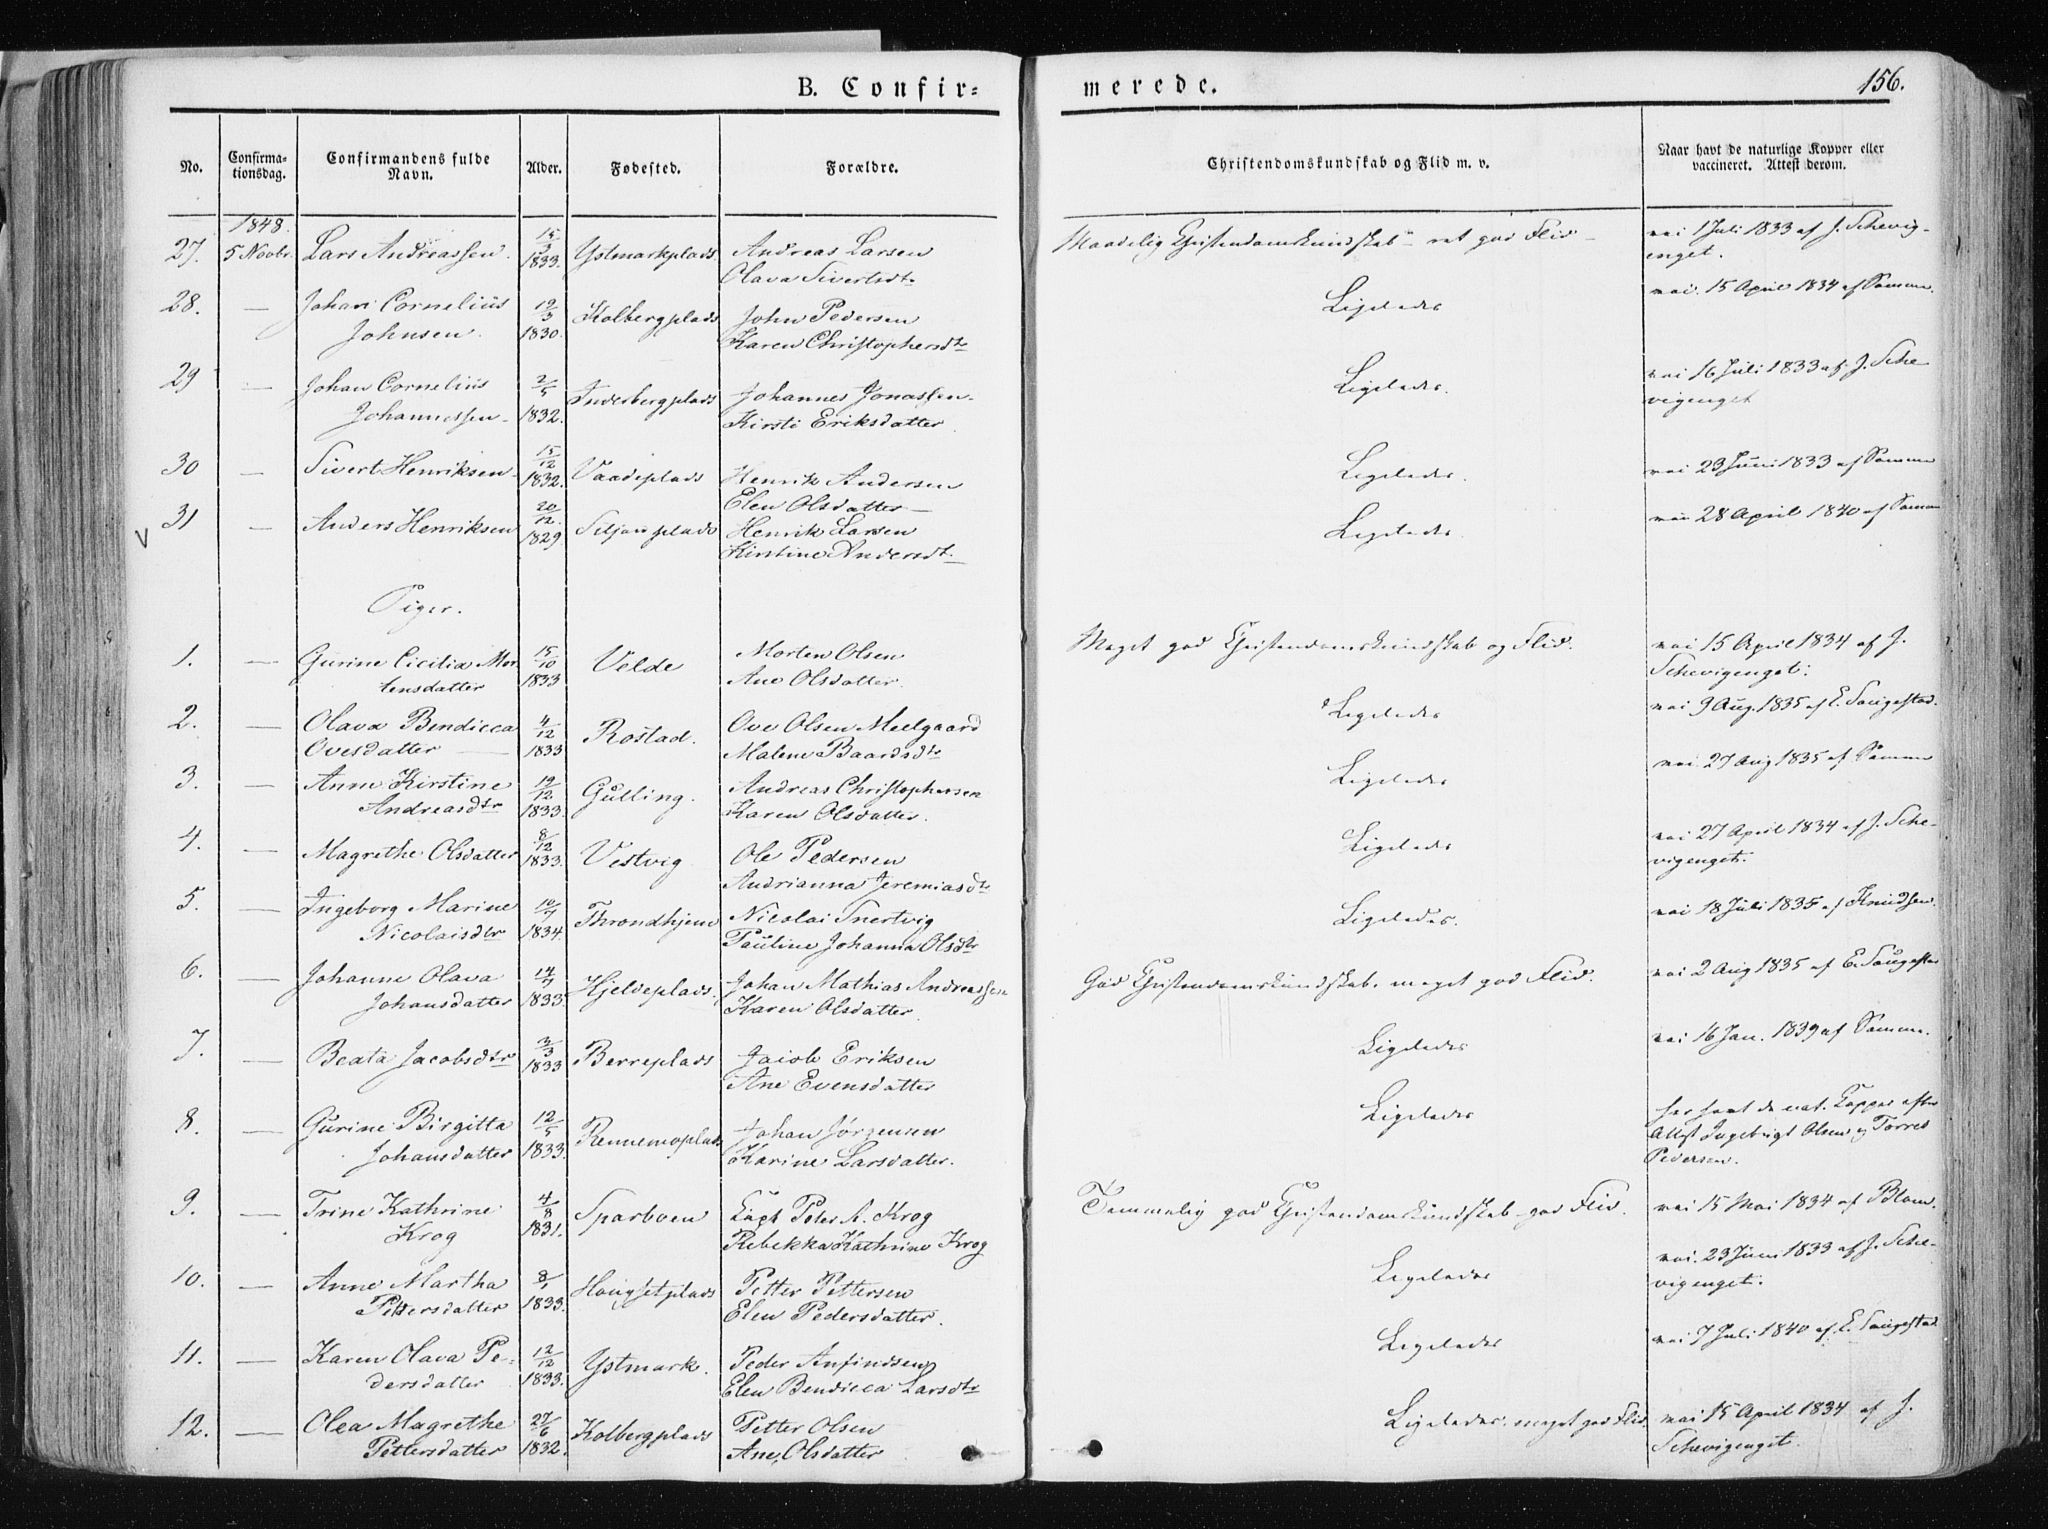 B. Confir=
merede.
156.
No.
Confirma-
tionsdag.
Confirmandens fulde
Navn.
Alder.
Fødested.
Forældre.
Christendomskundskab og Flid m. v.
Naar havt de naturlige Kopper eller
vaccineret. Attest derom.
1848.
27. 5 Novbr. Lars Andreassen. 15/3 1833. Ystmarkplads. Andreas Larsen
Olava Sivertsdt.
Maadelig Christendomskundskab - ret god Flid -
vac 1 Juli 1833 af J. Schevig-
enget.
28. — Johan Cornelius 19/3 1830. Kolbergplads John Pedersen
Johnsen. Karen Christophersdtr
Ligeledes
vac. 15 April 1834 af Samme.
29 — Johan Cornelius 2/5 1832. Inderbergplads Johannes Jonassen.
Johannessen- Kirsti Eriksdatter.
Ligeledes.
vac 16 Juli 1833 af J. Sche
vigenget
30 — Sivert Henriksen 15/12 1832. Vaadeplads Henrik Andersen
Elen Olsdatter —
Ligeledes.
vac 23 Juni 1833 af Samme
V 31 — Anders Henriksen 20/12. 1829 Siljanplads Henrik Larsen
Kirstine Andersdt.
Ligeledes.
vac 28 April 1840 af Samme
Piger.
1. — Gurine Cicilia Mor 15/10 1833 Velde Morten Olsen
tensdatter Ane Olsdatter.
Meget god Christendomskundskab og Flid.
vac 15 April 1834 af J.
Schevigenget.
2. — Olava Bendicca 4/12 1833 Rostad. Ove Olsen Meelgaard
Ovesdatter — Malene Baardsdtr
Ligeledes
vac 9 Aug. 1835 af E. Saugestad.
3. — Anne Kirstine 19/12 1833. Gulling. Andreas Christophersen
Andreasdtr Karen Olsdatter.
Ligeledes
vac. 27 Aug 1835 af Samme
4. — Magrethe Olsdatter 8/12 1833. Vestvig Ole Pedersen
Andrianna Jeremiasdtr
Ligeledes
vac 27 April 1834 af J. Sche-
vigenget.
5. — Ingeborg Marine 10/7 1834. Throndhjem Nicolai Snertvig
Nicolaisdtr Pauline Johanna Olsdtr
Ligeledes.
vac 18 Juli 1835 af Knudsen.
6. — Johanne Olava 14/7 1833. Hjeldeplads. Johan Mathias Andreassen
Johansdatter Karen Olsdatter.
God Christendomskundskab. meget god Flid.
vac 2 Aug 1835 af E. Saugestad
7. — Beata Jacobsdtr 3/3 1833 Berreplads Jacob Eriksen
Ane Evensdatter
Ligeledes
vac 16 Jan. 1839 af Samme.
8. — Gurine Birgitta 12/5 1833. Rennemoplads Johan Jørgensen
Johansdatter Karine Larsdatter.
Ligeledes
har havt de nat. Kopper efter
Attest Ingebrigt Olsen og Torres
Pedersen.
9. — Trine Kathrine 4/8 1831. Sparboen Capt Peter A. Krog
Krog Rebekka Kathrine Krog
Temmelig god Christendomskundskab - god Flid.
vac 15 Mai 1834 af Blom.
10. — Anne Martha 8/1 1833. Hougsetplads Petter Pettersen
Pettersdatter Elen Pedersdatter.
Ligeledes
vac. 23 Juni 1833 af J. Sche-
vigenget.
11. — Karen Olava Pe- 12/12 1833. Ystmark. Peder Anfindsen
dersdatter Elen Bendicca Larsdtr
Ligeledes
vac 7 Juli 1840 af E. Saugestad
12. — Olea Magrethe 27/6 1832. Kolbergplads Petter Olsen
Pettersdatter Ane Olsdatter
Ligeledes. meget god Flid.
vac 15 April 1834 af J.
Schevigenget.